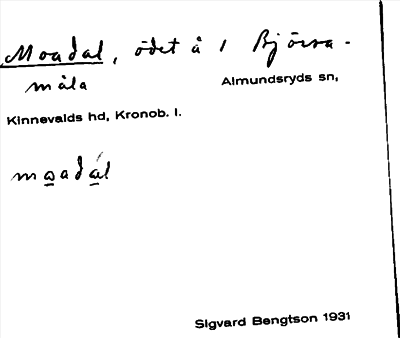 Moadal, ödet å 1 Björsa-
måla Almundsryds sn,
Kinnevalds hd, Kronob. l.
moadál
Sigvard Bengtson 1931